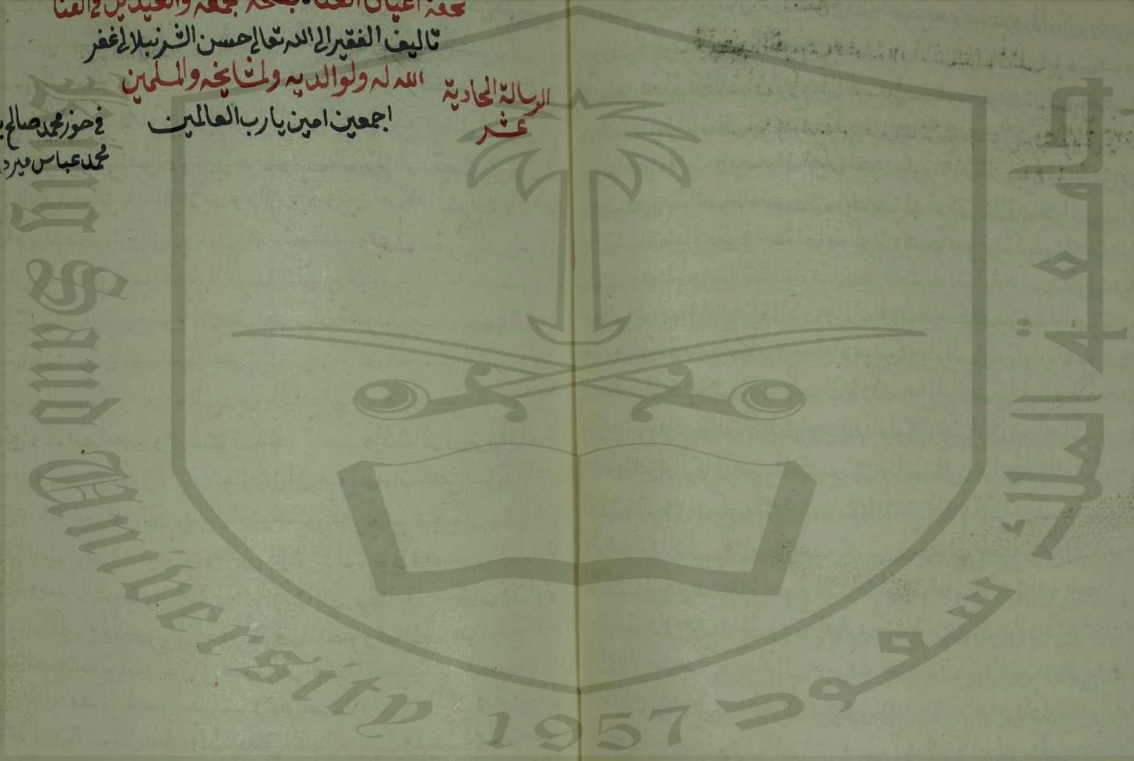 تحفة اعيان الغناء بصحة جمعة والعيدين في الفنا
تاليف الفقير الى الله تعالى حسن الشرنبلالي غفر
الله له ولوالديه ولمشايخه والمسلمين
اجمعين امين يارب العالمين
الرسالة الحادية
عشر
في حوز محمد صالح
محمد عباس ميرد
جامعة الملك سعود
King Saud University
1957